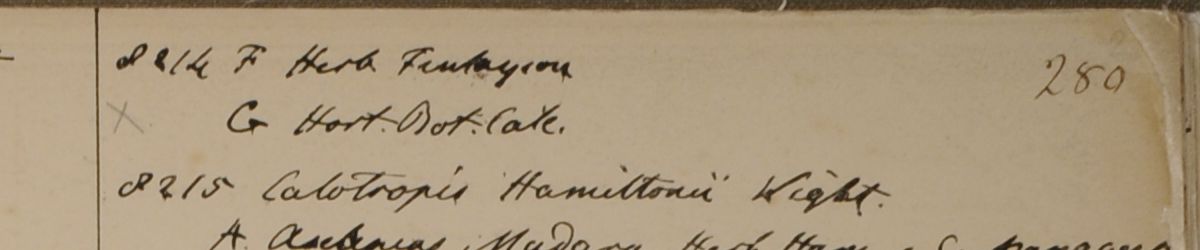 8214 F Herb Finlayson
280
G Hort. Bot. Calc.
8215 Calotropis Hamiltonii Wight.
A Asclepias Madara Herb. Ham.